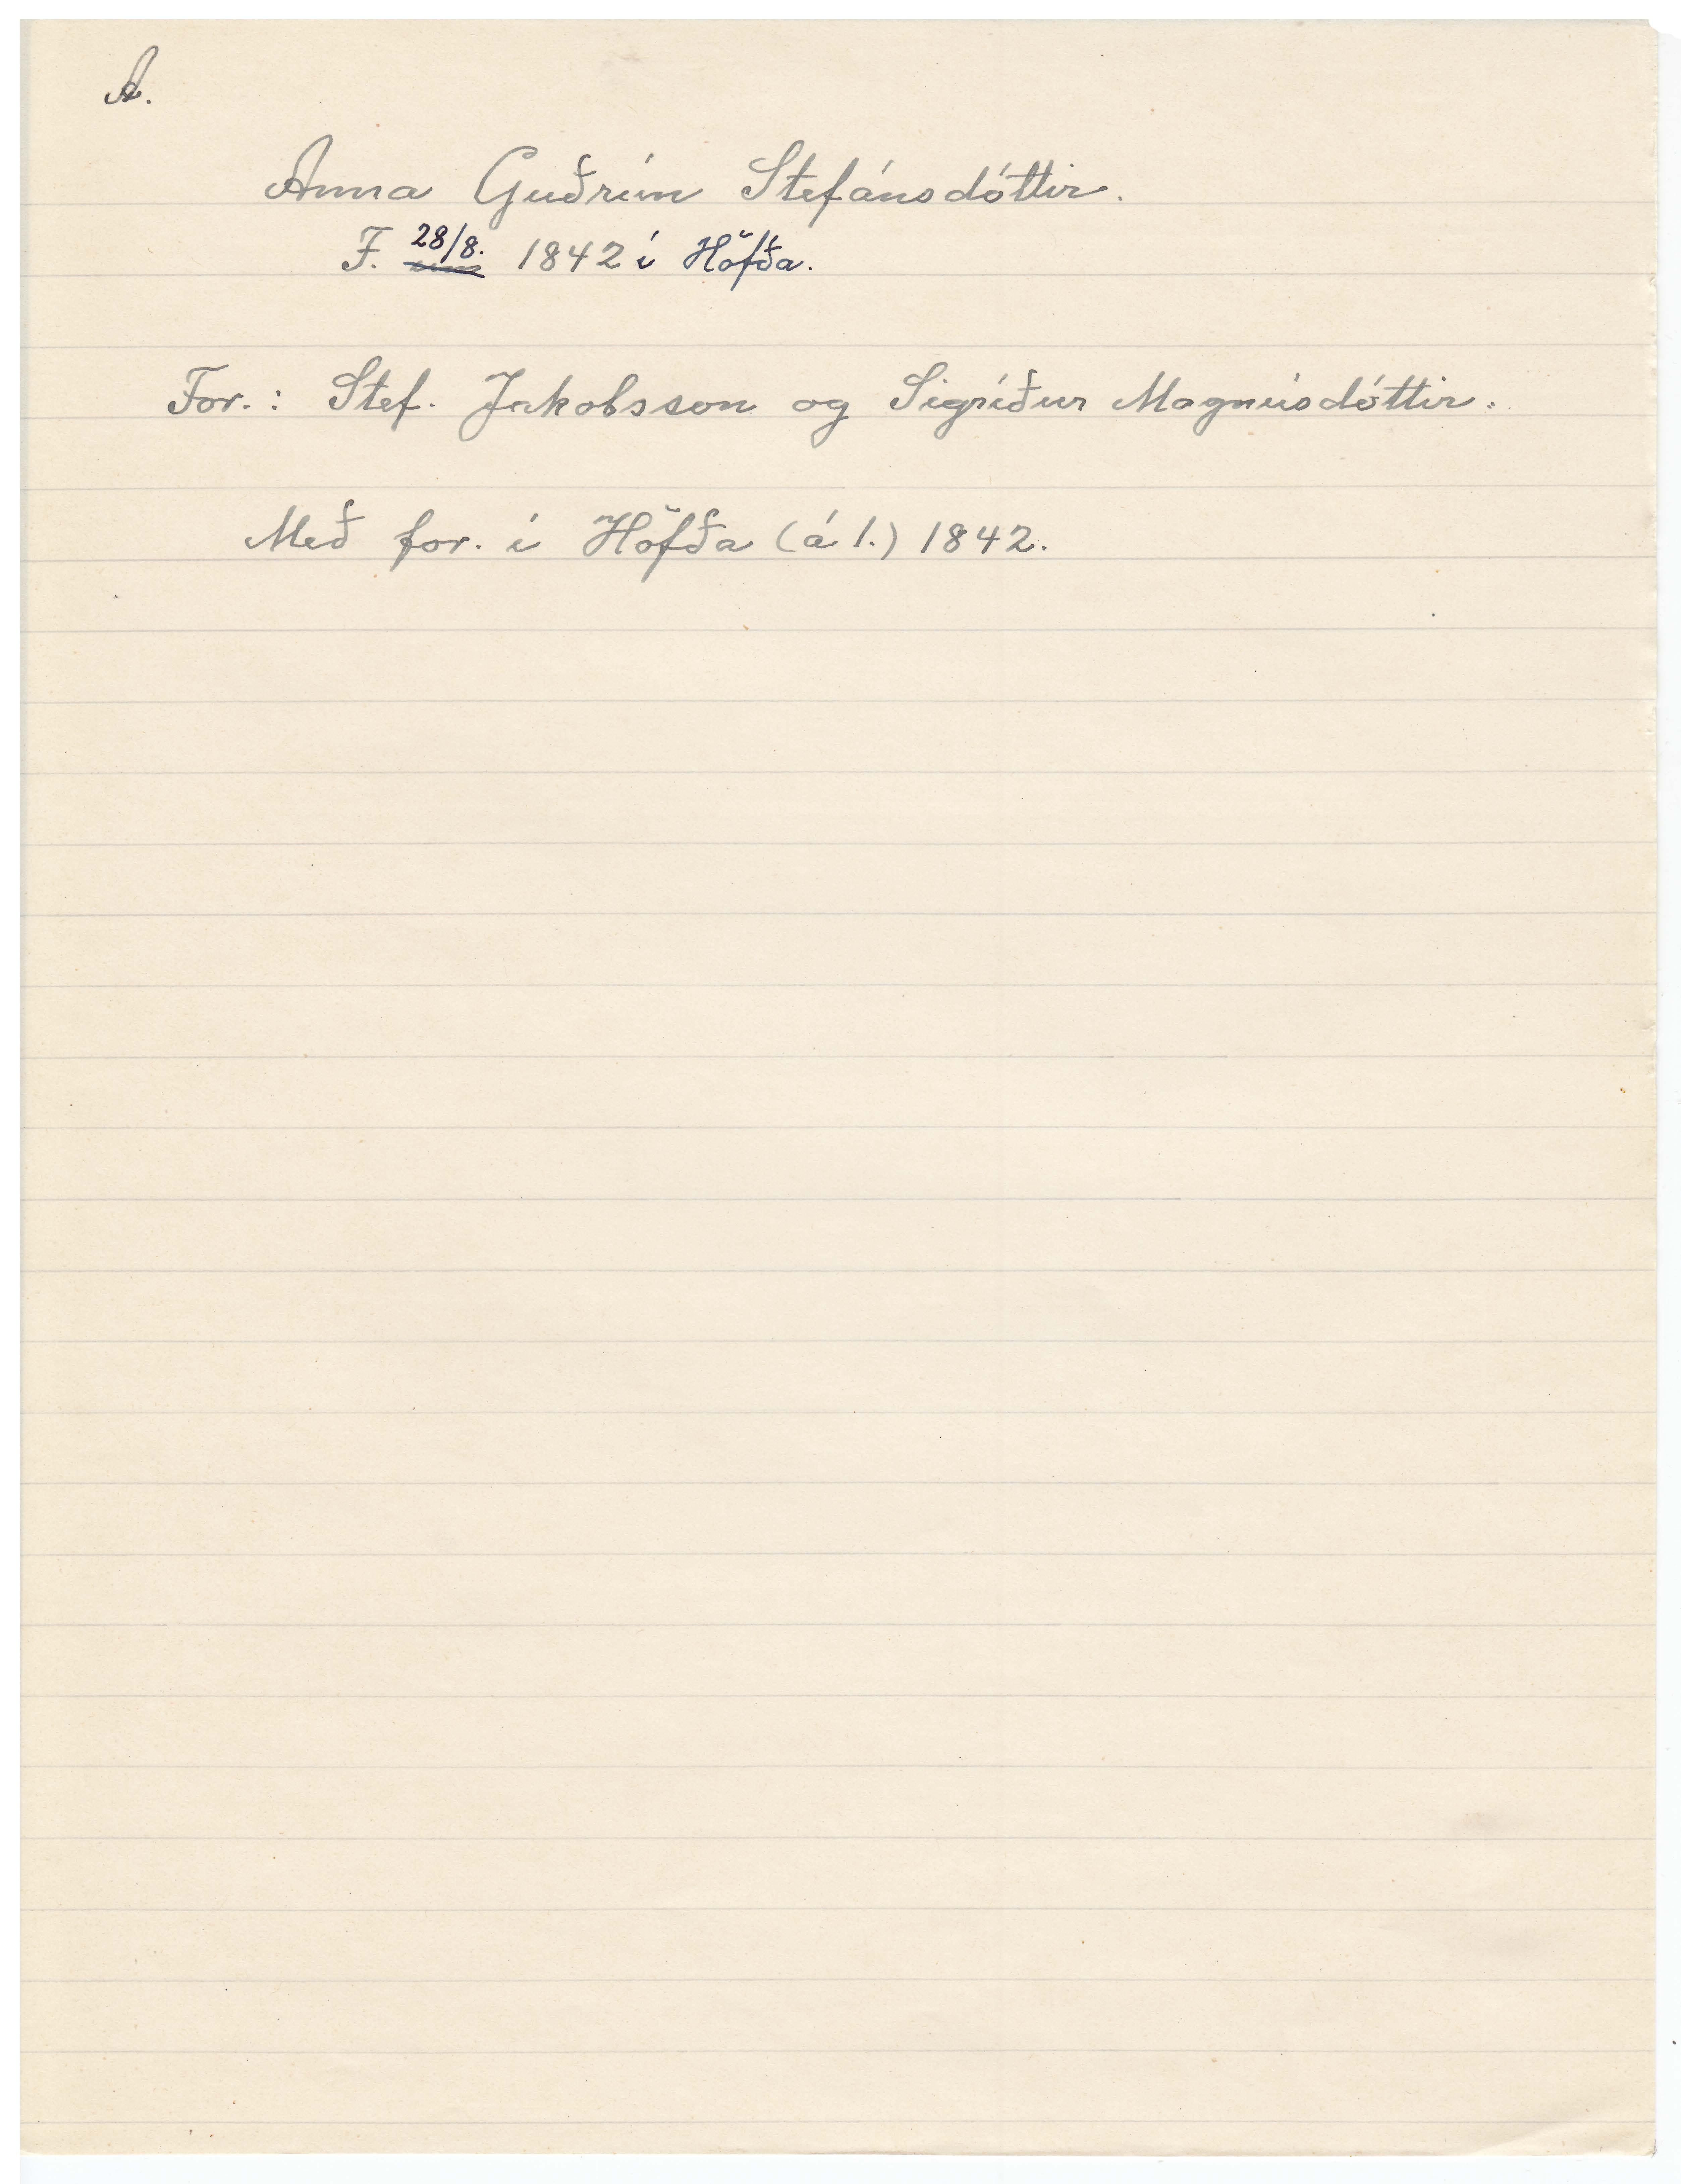 A.
Anna Guðrún Stefánsdóttir.
F. 28/8. 1842 í Höfða.
For.: Stef. Jakobsson og Sigríður Magnúsdóttir.
Með for. í Höfða (á 1.) 1842.